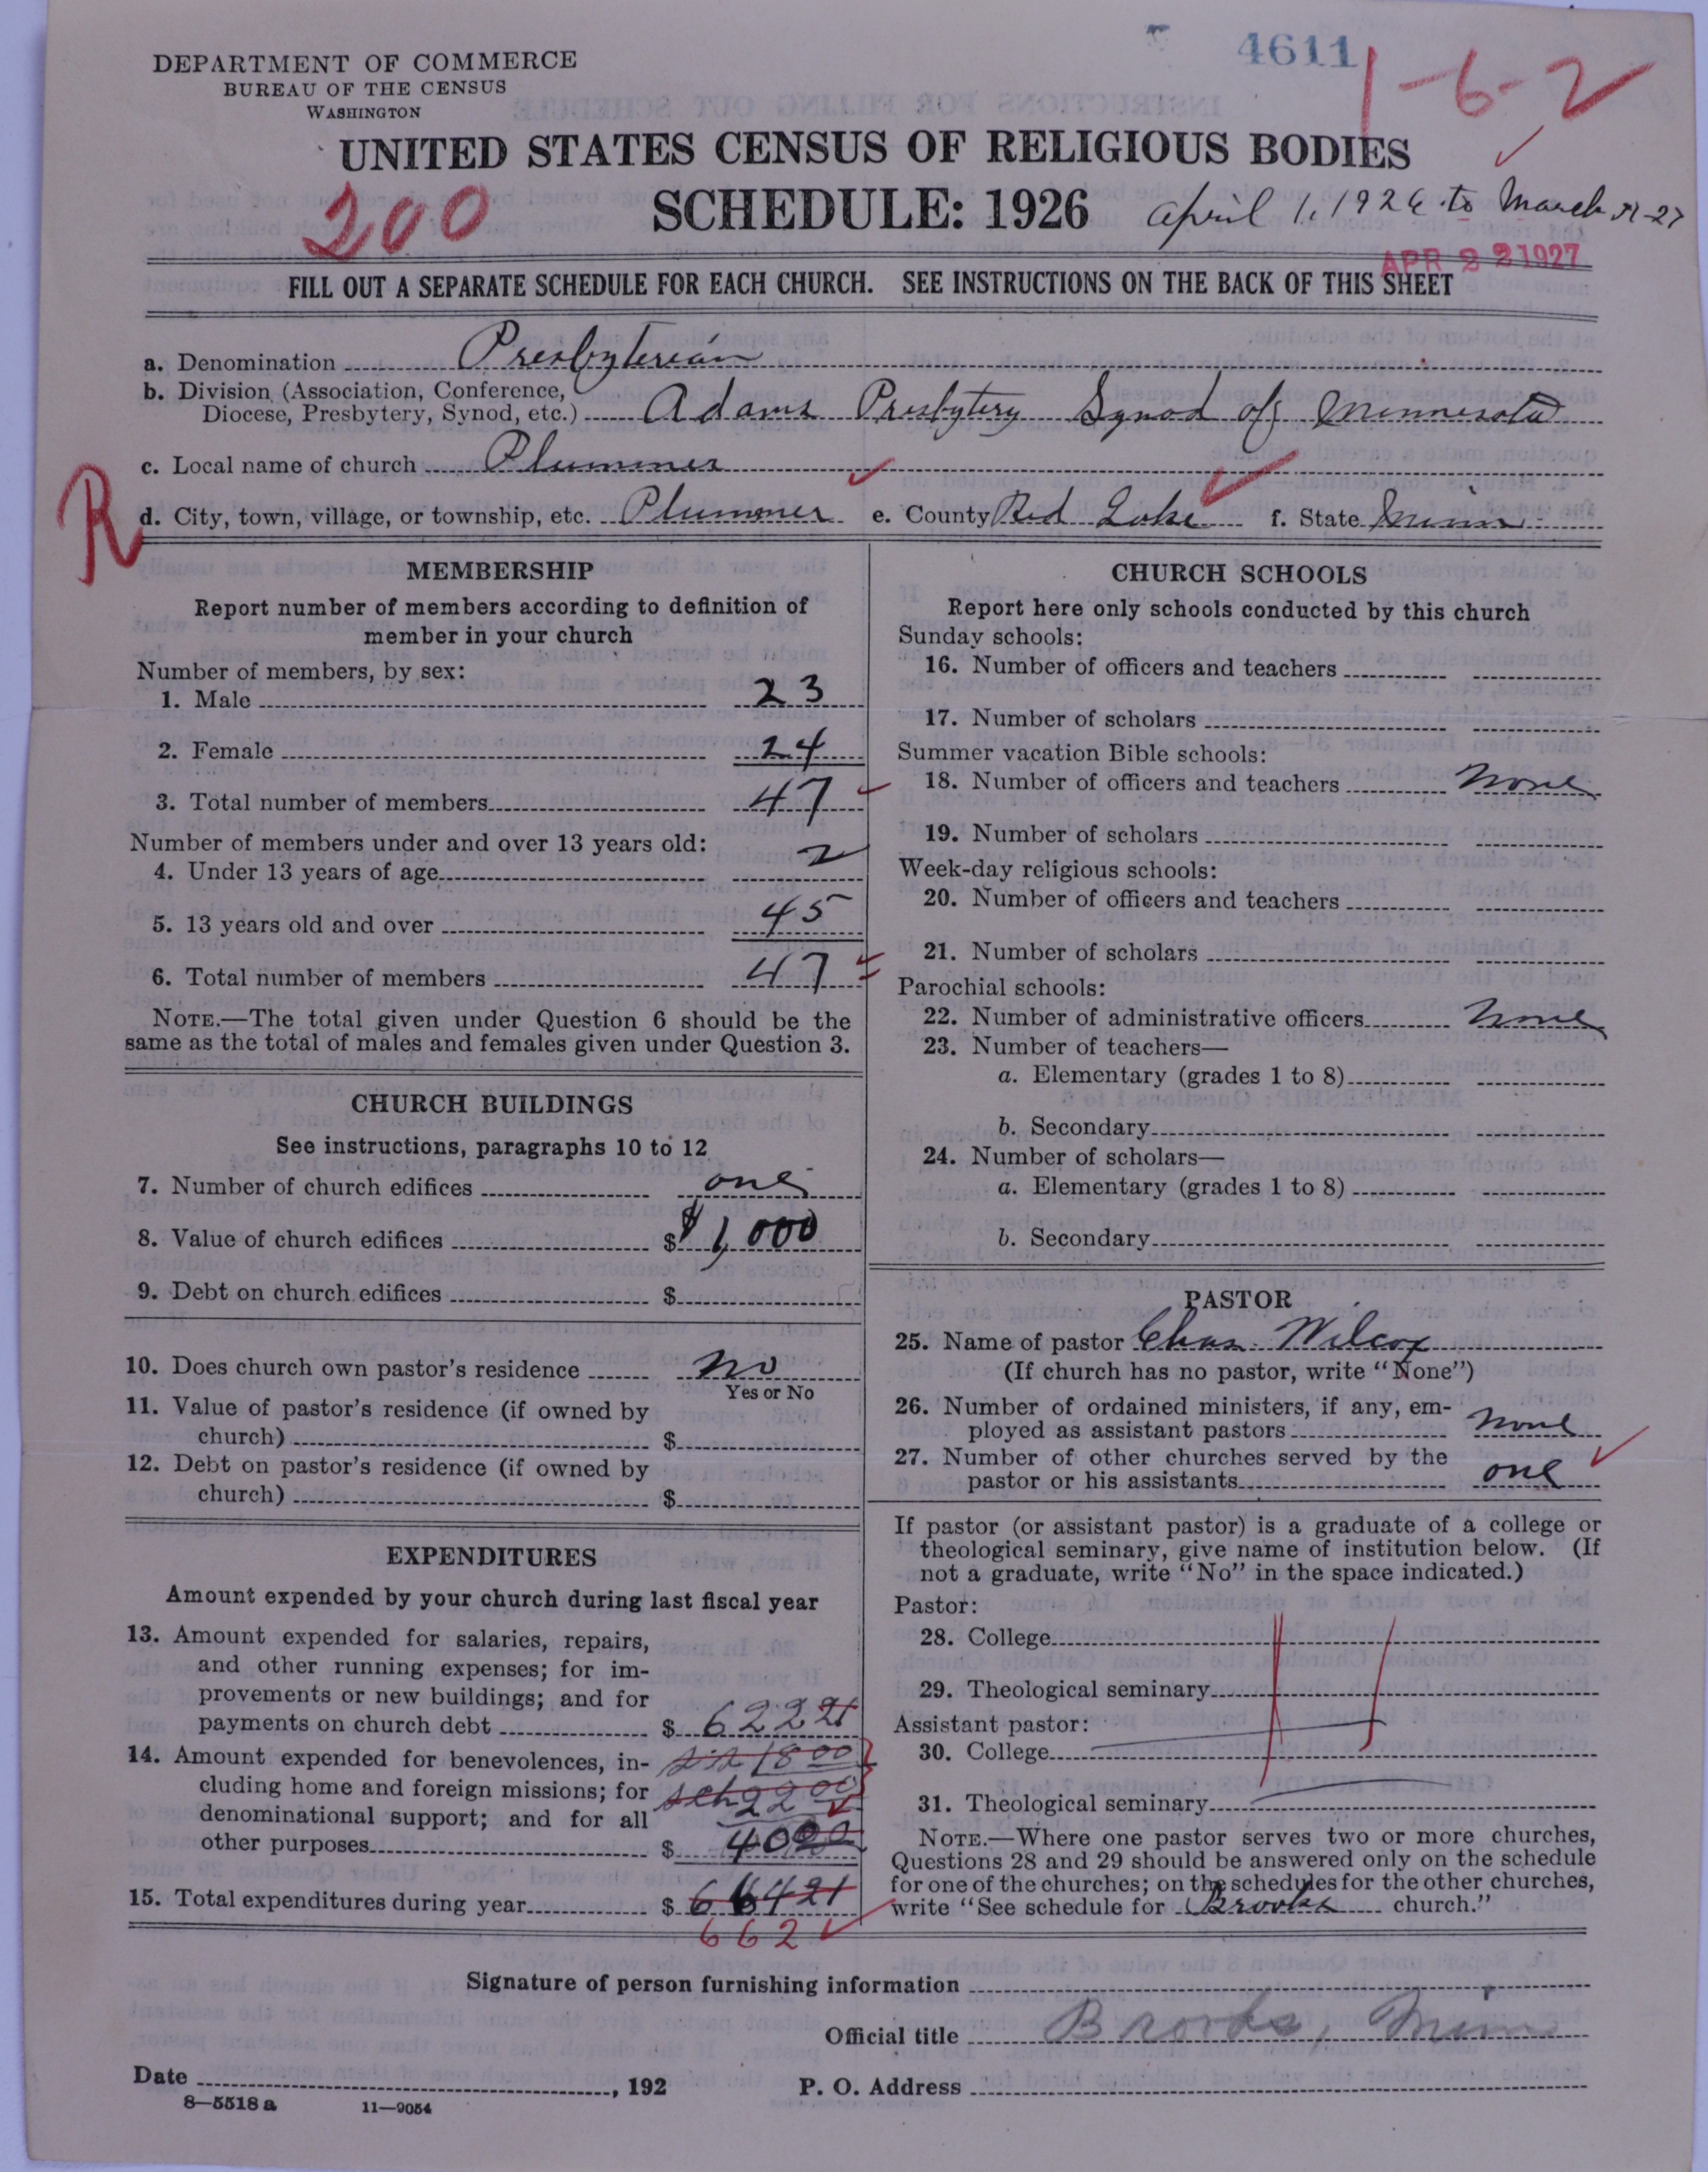 4611
1-6-2
DEPARTMENT OF COMMERCE
BUREAU OF THE CENSUS
WASHINGTON
UNITED STATES CENSUS OF RELIGIOUS BODIES
200
SCHEDULE: 1926 April 1, 1926 to March 31-27
APR 22 1927
FILL OUT A SEPARATE SCHEDULE FOR EACH CHURCH. SEE INSTRUCTIONS ON THE BACK OF THIS SHEET
a. Denomination Presbyterian
b. Division (Association, Conference,
Diocese, Presbytery, Synod, etc.) Adams Presbytery Synod of Minnesota
c. Local name of church Plummer
R
d. City, town, village, or township, etc. Plummer e. County Red Lake f. State Minn
MEMBERSHIP
Report number of members according to definition of
member in your church
Number of members, by sex:
1. Male 23
2. Female 24
3. Total number of members 47
Number of members under and over 13 years old:
4. Under 13 years of age 2
5. 13 years old and over 45
6. Total number of members 47
NOTE.—The total given under Question 6 should be the
same as the total of males and females given under Question 3.
CHURCH BUILDINGS
See instructions, paragraphs 10 to 12
7. Number of church edifices one
8. Value of church edifices $ $1,000
9. Debt on church edifices $
10. Does church own pastor's residence no
Yes or No
11. Value of pastor's residence (if owned by
church) $
12. Debt on pastor's residence (if owned by
church) $
EXPENDITURES
Amount expended by your church during last fiscal year
13. Amount expended for salaries, repairs,
and other running expenses; for im-
provements or new buildings; and for
payments on church debt $ 622 21
14. Amount expended for benevolences, in- 18 00
cluding home and foreign missions; for 22 00
denominational support; and for all
other purposes $ 40 00
15. Total expenditures during year $ 664 21
662
CHURCH SCHOOLS
Report here only schools conducted by this church
Sunday schools:
16. Number of officers and teachers
17. Number of scholars
Summer vacation Bible schools:
18. Number of officers and teachers none
19. Number of scholars
Week-day religious schools:
20. Number of officers and teachers
21. Number of scholars
Parochial schools:
22. Number of administrative officers none
23. Number of teachers—
a. Elementary (grades 1 to 8)
b. Secondary
24. Number of scholars—
a. Elementary (grades 1 to 8)
b. Secondary
PASTOR
25. Name of pastor Chas. Wilcox
(If church has no pastor, write "None")
26. Number of ordained ministers, if any, em-
ployed as assistant pastors none
27. Number of other churches served by the
pastor or his assistants one
If pastor (or assistant pastor) is a graduate of a college or
theological seminary, give name of institution below. (If
not a graduate, write "No" in the space indicated.)
Pastor:
28. College
29. Theological seminary
Assistant pastor:
30. College
31. Theological seminary
NOTE.—Where one pastor serves two or more churches,
Questions 28 and 29 should be answered only on the schedule
for one of the churches; on the schedules for the other churches,
write "See schedule for Brooks church."
Signature of person furnishing information
Official title Brooks, Minn
Date , 192 P. O. Address
8—5518 a 11—9054